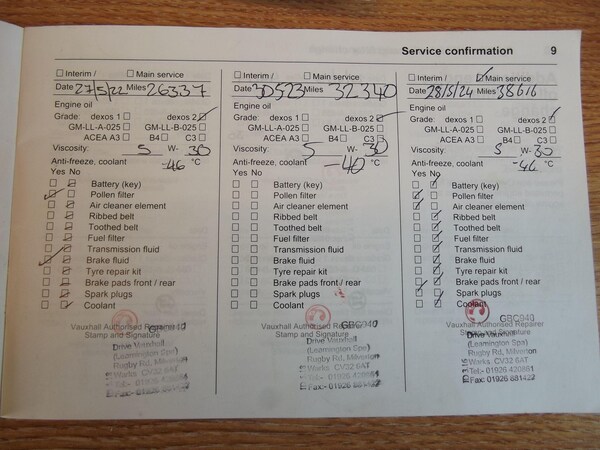 Service confirmation 9
Interim / Main service
Date 27/5/22 Miles 26337
Engine oil
Grade: dexos 1 dexos 2
GM-LL-A-025 GM-LL-B-025
ACEA A3 B4 C3
Viscosity: 5 W- 30
Anti-freeze, coolant -46 °C
Yes No
Battery (key)
Pollen filter
Air cleaner element
Ribbed belt
Toothed belt
Fuel filter
Transmission fluid
Brake fluid
Tyre repair kit
Brake pads front / rear
Spark plugs
Coolant
Vauxhall Authorised Repairer
Stamp and Signature
Drive Vauxhall
(Leamington Spa)
Rugby Rd, Milverton
Works. CV32 6AT
Tel:- 01926 420861
Fax:- 01926 881422
Interim / Main service
Date 30523 Miles 32340
Engine oil
Grade: dexos 1 dexos 2
GM-LL-A-025 GM-LL-B-025
ACEA A3 B4 C3
Viscosity: 5 W- 30
Anti-freeze, coolant -40 °C
Yes No
Battery (key)
Pollen filter
Air cleaner element
Ribbed belt
Toothed belt
Fuel filter
Transmission fluid
Brake fluid
Tyre repair kit
Brake pads front / rear
Spark plugs
Coolant
GBC940
Vauxhall Authorised Repairer
Stamp and Signature
Drive Vauxhall
(Leamington Spa)
Rugby Rd, Milverton
Works. CV32 6AT
Tel:- 01926 420861
Fax:- 01926 881422
Interim / Main service
Date 28/5/24 Miles 38616
Engine oil
Grade: dexos 1 dexos 2
GM-LL-A-025 GM-LL-B-025
ACEA A3 B4 C3
Viscosity: 5 W- 30
Anti-freeze, coolant -46 °C
Yes No
Battery (key)
Pollen filter
Air cleaner element
Ribbed belt
Toothed belt
Fuel filter
Transmission fluid
Brake fluid
Tyre repair kit
Brake pads front / rear
Spark plugs
Coolant
GBC940
Vauxhall Authorised Repairer
Stamp and Signature
Drive Vauxhall
(Leamington Spa)
Rugby Rd, Milverton
Works. CV32 6AT
Tel:- 01926 420861
Fax:- 01926 881422